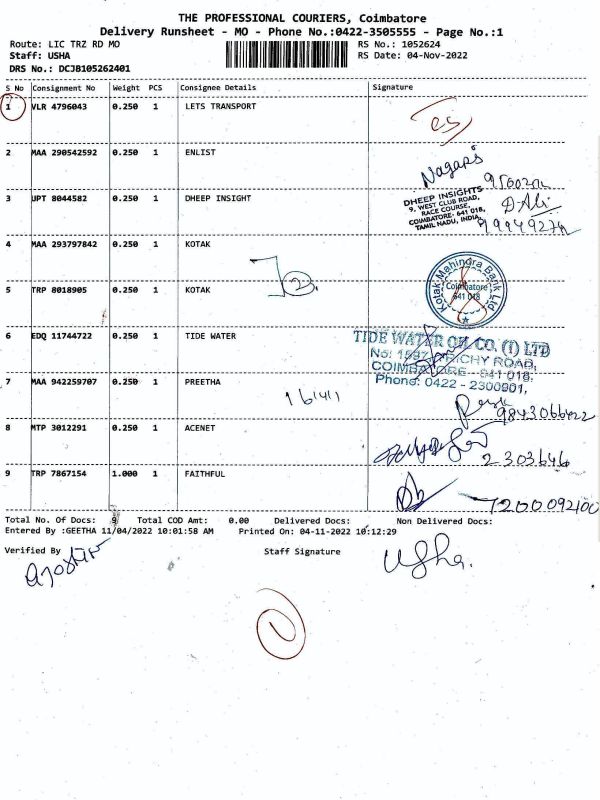 THE PROFESSIONAL COURIERS, Coimbatore
Delivery Runsheet - MO - Phone No.:0422-3505555 - Page No.:1
Route: LIC TRZ RD MO RS No.: 1052624
Staff: USHA RS Date: 04-Nov-2022
DRS No.: DCJB105262401
S No Consignment No Weight PCS Consignee Details Signature
1 VLR 4796043 0.250 1 LETS TRANSPORT
2 MAA 290542592 0.250 1 ENLIST
Nagaps
3 JPT 8044582 0.250 1 DHEEP INSIGHT
DHEEP INSIGHTS
9, WEST CLUB ROAD,
RACE COURSE,
COIMBATORE- 641 018,
TAMIL NADU, INDIA
D.Ali
4 MAA 293797842 0.250 1 KOTAK
2
Kotak Mahindra Bank Ltd
Coimbatore
641 018
5 TRP 8018905 0.250 1 KOTAK
6 EDQ 11744722 0.250 1 TIDE WATER
TIDE WATER OIL CO. (I) LTD
No: 1597, TRICHY ROAD,
COIMBATORE - 641 018,
Phone: 0422 - 2300901,
7 MAA 942259707 0.250 1 PREETHA
16141
9843066422
8 MTP 3012291 0.250 1 ACENET
2303646
9 TRP 7867154 1.000 1 FAITHFUL
7200092100
Total No. Of Docs: 9 Total COD Amt: 0.00 Delivered Docs: Non Delivered Docs:
Entered By :GEETHA 11/04/2022 10:01:58 AM Printed On: 04-11-2022 10:12:29
Verified By Staff Signature
Usha.